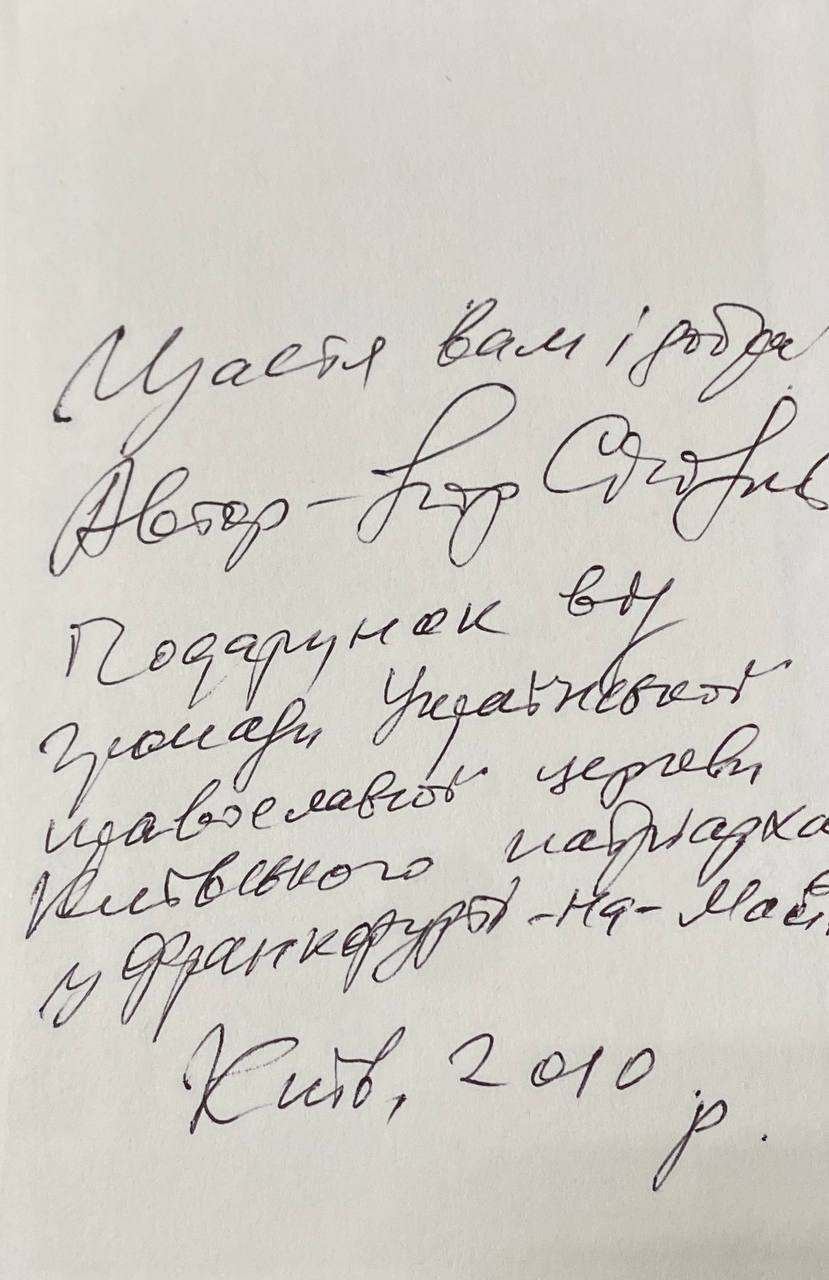 Щастя вам і добра
Автор – Ігор
Подарунок від
громади Української
православної церкви
Київського патріарха
у Франкфурті-на-Май
Київ, 2010 р.